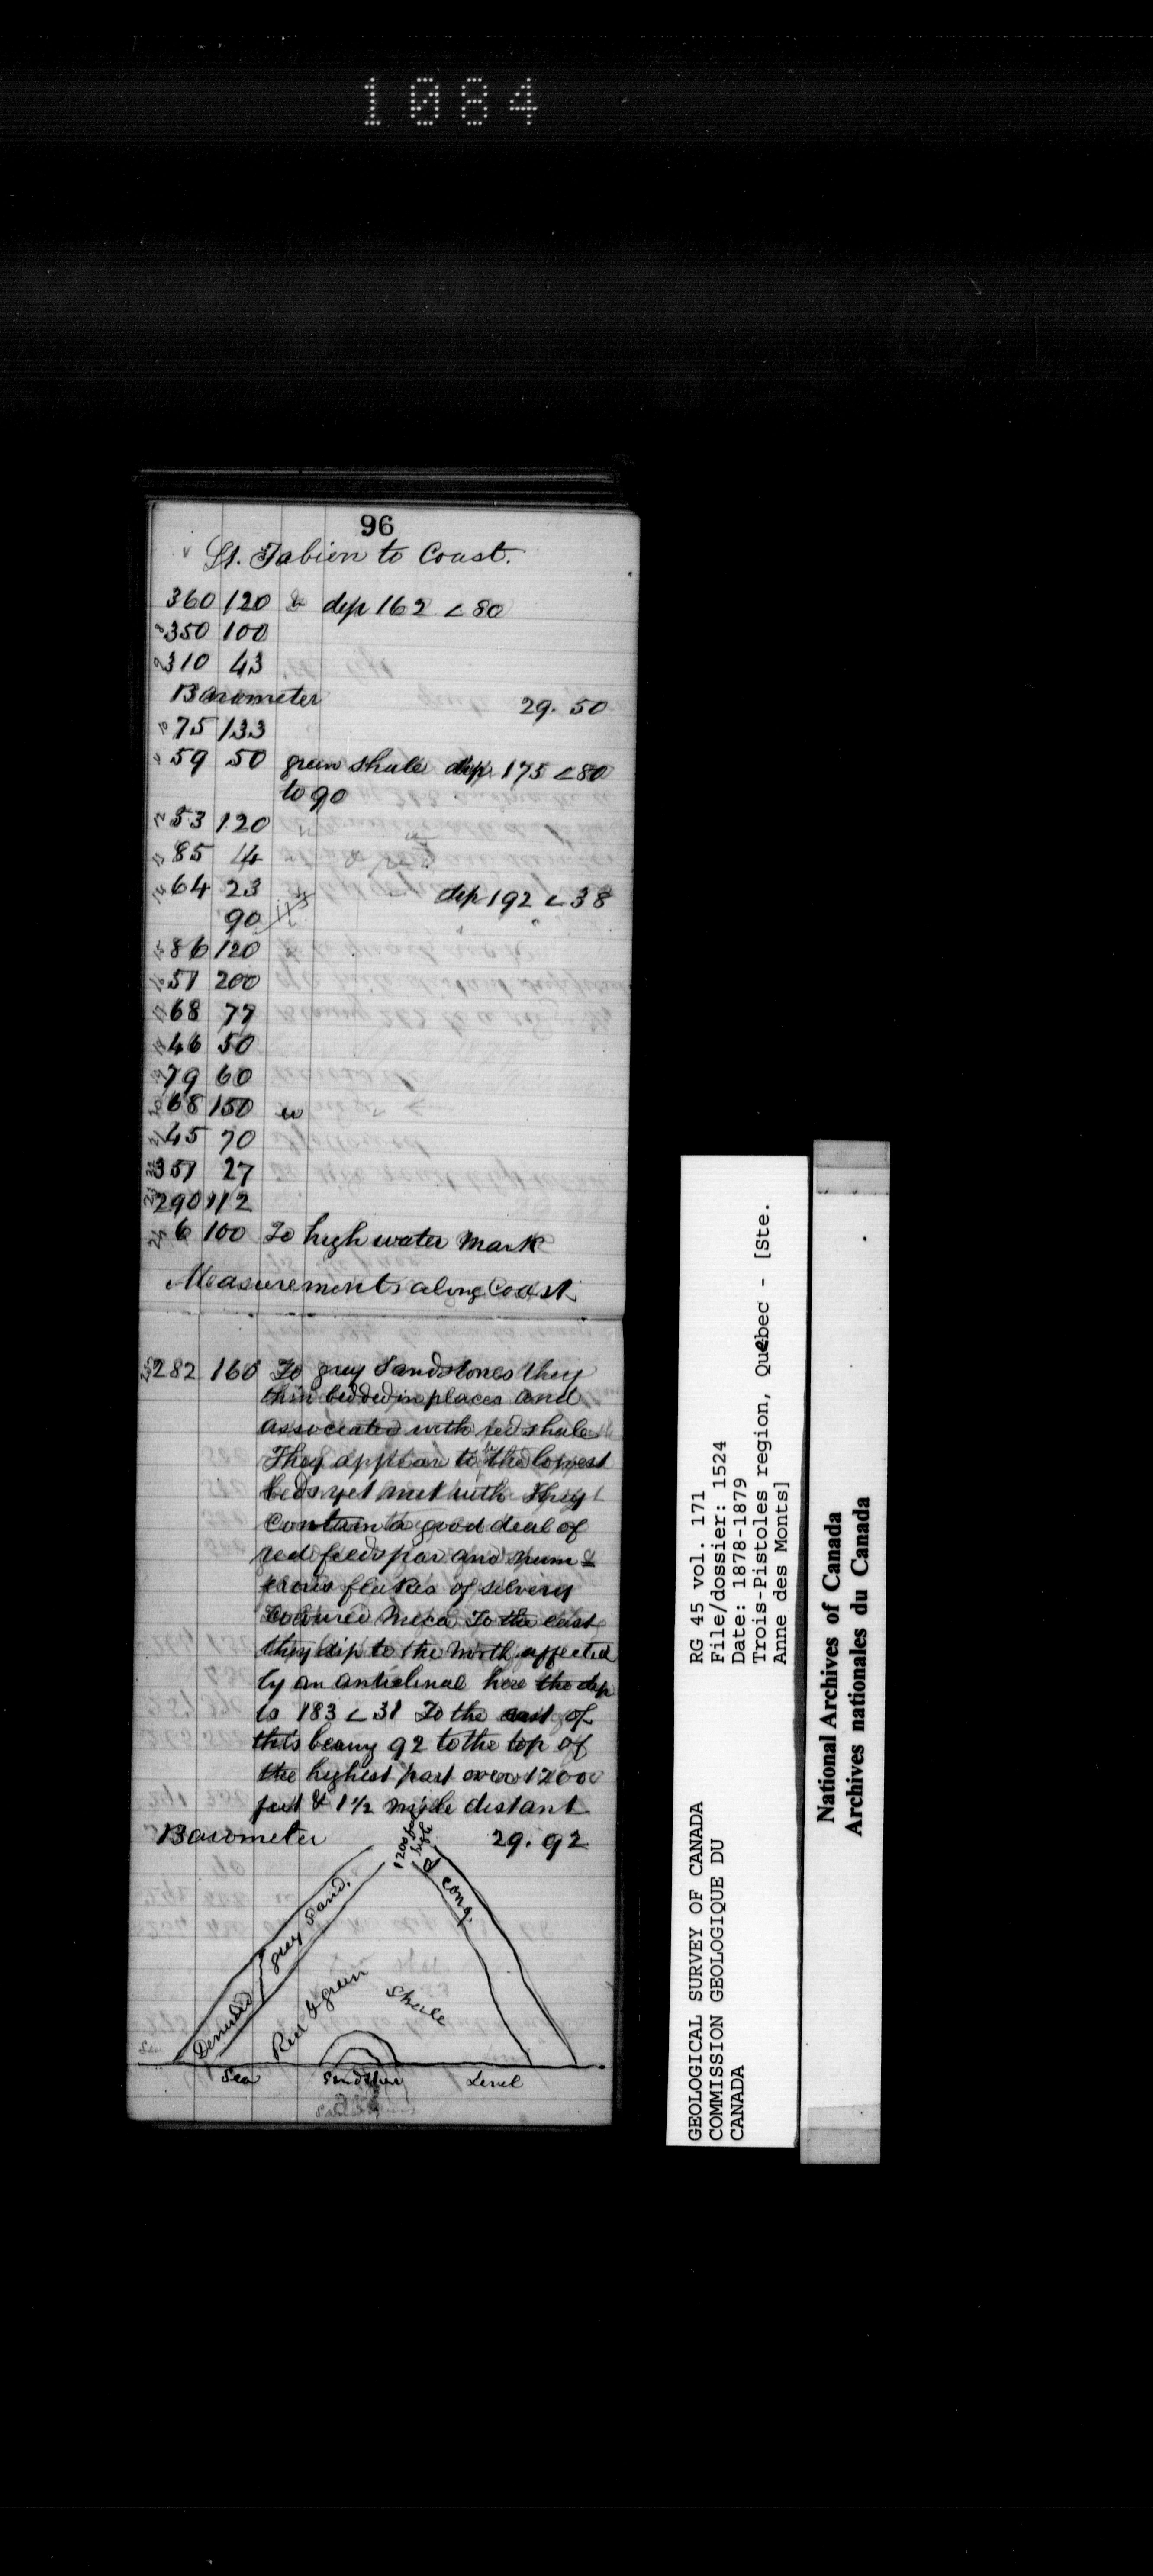 1084
96
St. Fabien to Coast.
360 120 dip 162 < 80
8 350 100
9 310 43
Barometer 29.50
10 75 133
11 59 50 green shale dip 175 < 80
to 90
12 53 120
13 85 14
14 64 23 dip 192 < 38
90
15 86 120
16 51 200
17 68 77
18 46 50
19 79 60
20 68 150
21 45 70
22 351 27
23 290 112
24 6 100 To high water mark
Measurements along Coast
25 282 160 To grey Sandstones they
thin bedded in places and
associated with red shale
They appear to be the lowest
beds yet met with They
contain a good deal of
red feldspar and num
erous flakes of silvery
coloured mica To the east
they dip to the North affected
by an anticlinal here the dip
is 183 < 31 To the east of
this bearing 92 to the top of
the highest part over 1200
feet & 1½ mile distant
Barometer 29.92
1200 feet
high
cong.
grey Sand.
Denuded
Red & green
Shale
Sea Sandstone Level
GEOLOGICAL SURVEY OF CANADA
COMMISSION GEOLOGIQUE DU
CANADA
RG 45 vol. 171
File/dossier: 1524
Date: 1878-1879
Trois-Pistoles region, Quebec - [Ste.
Anne des Monts]
National Archives of Canada
Archives nationales du Canada